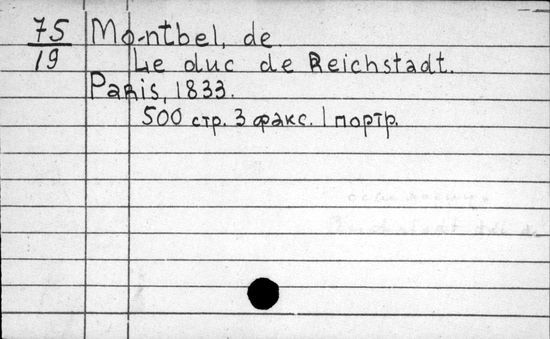 75
19
Montbel, de.
Le duc de Reichstadt.
Paris, 1833.
500 стр. 3 факс. 1 портр.